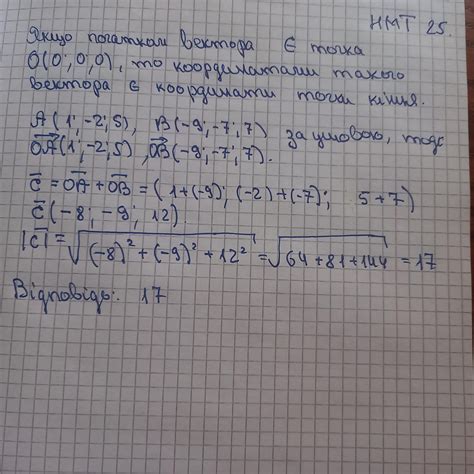 НМТ 25.
Якщо початком вектора є точка
O(0; 0; 0), то координатами такого
вектора є координати точки кінця.
A(1; -2; 5), B(-9; -7; 7) за умовою, тоді
OA(1; -2; 5), OB(-9; -7; 7).
c = OA + OB = (1+(-9); (-2)+(-7); 5+7)
c(-8; -9; 12)
|c| = √(-8)² + (-9)² + 12² = √64+81+144 = 17
Відповідь: 17